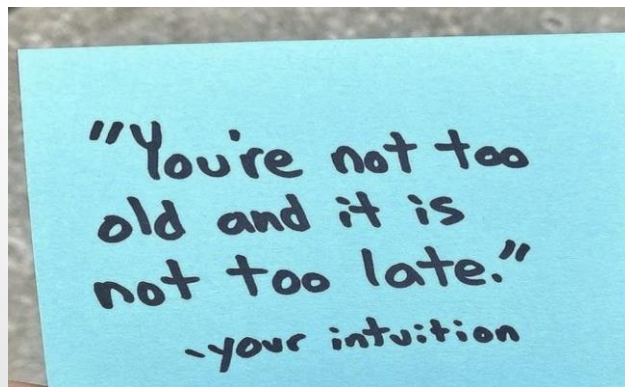 "You're not too
old and it is
not too late."
-your intuition